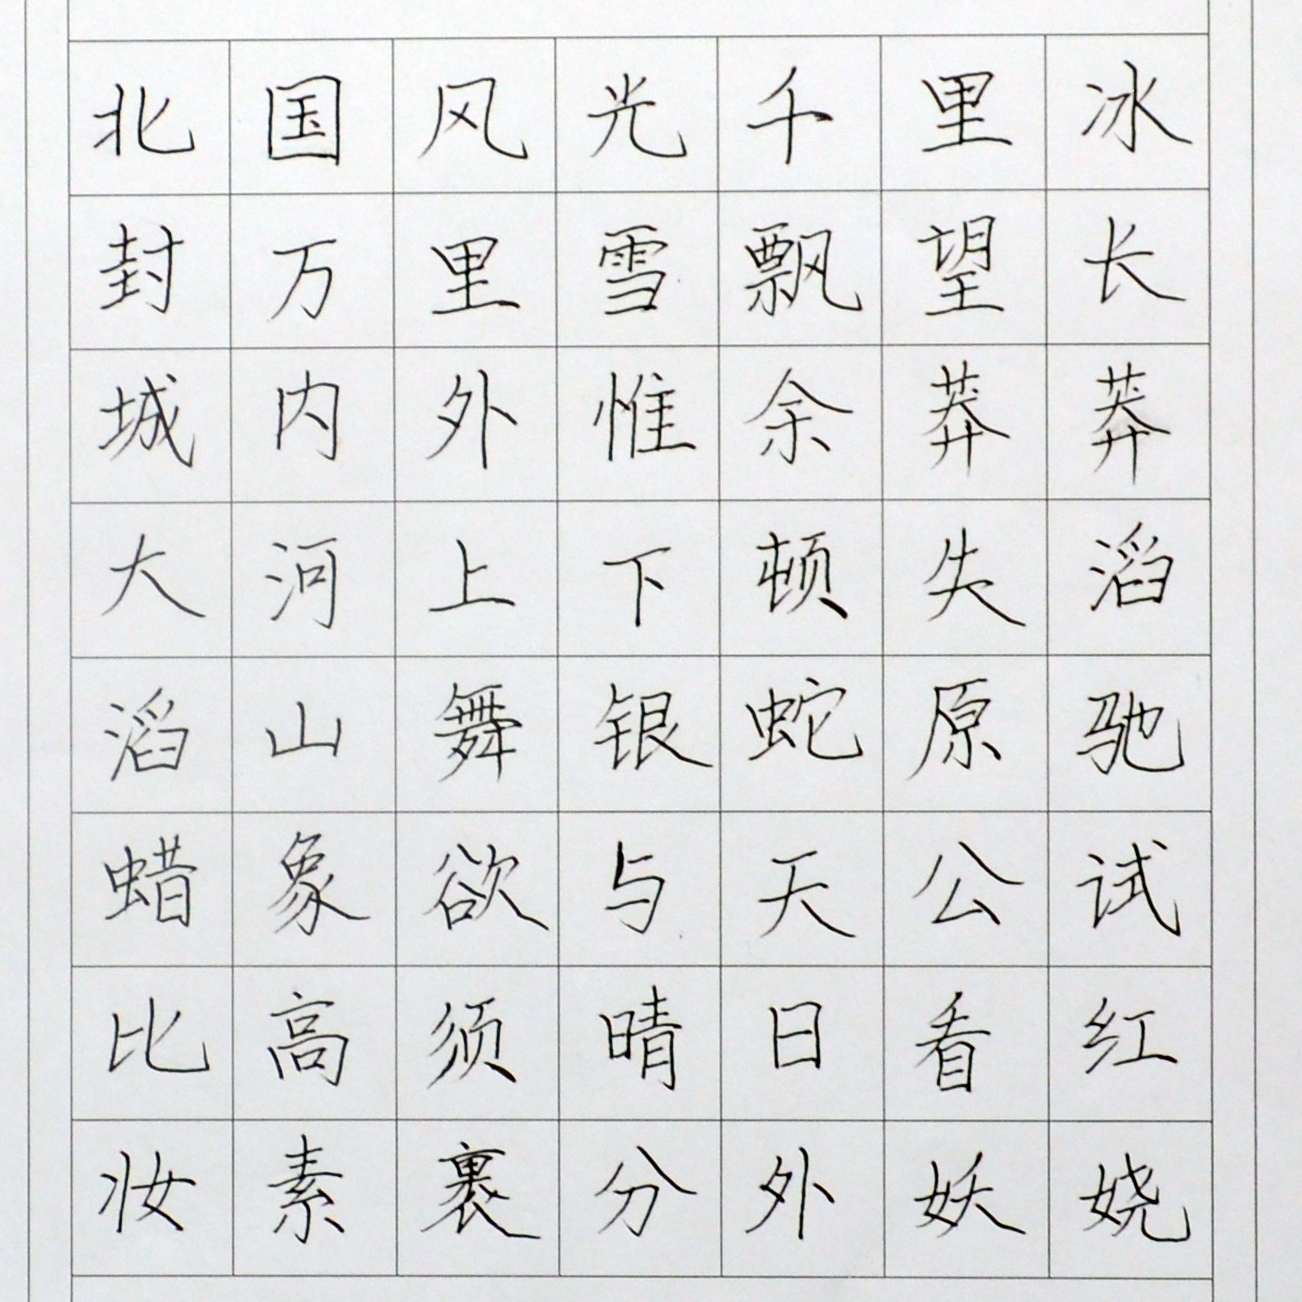 北国风光千里冰
封万里雪飘望长
城内外惟余莽莽
大河上下顿失滔
滔山舞银蛇原驰
蜡象欲与天公试
比高须晴日看红
妆素裹分外妖娆